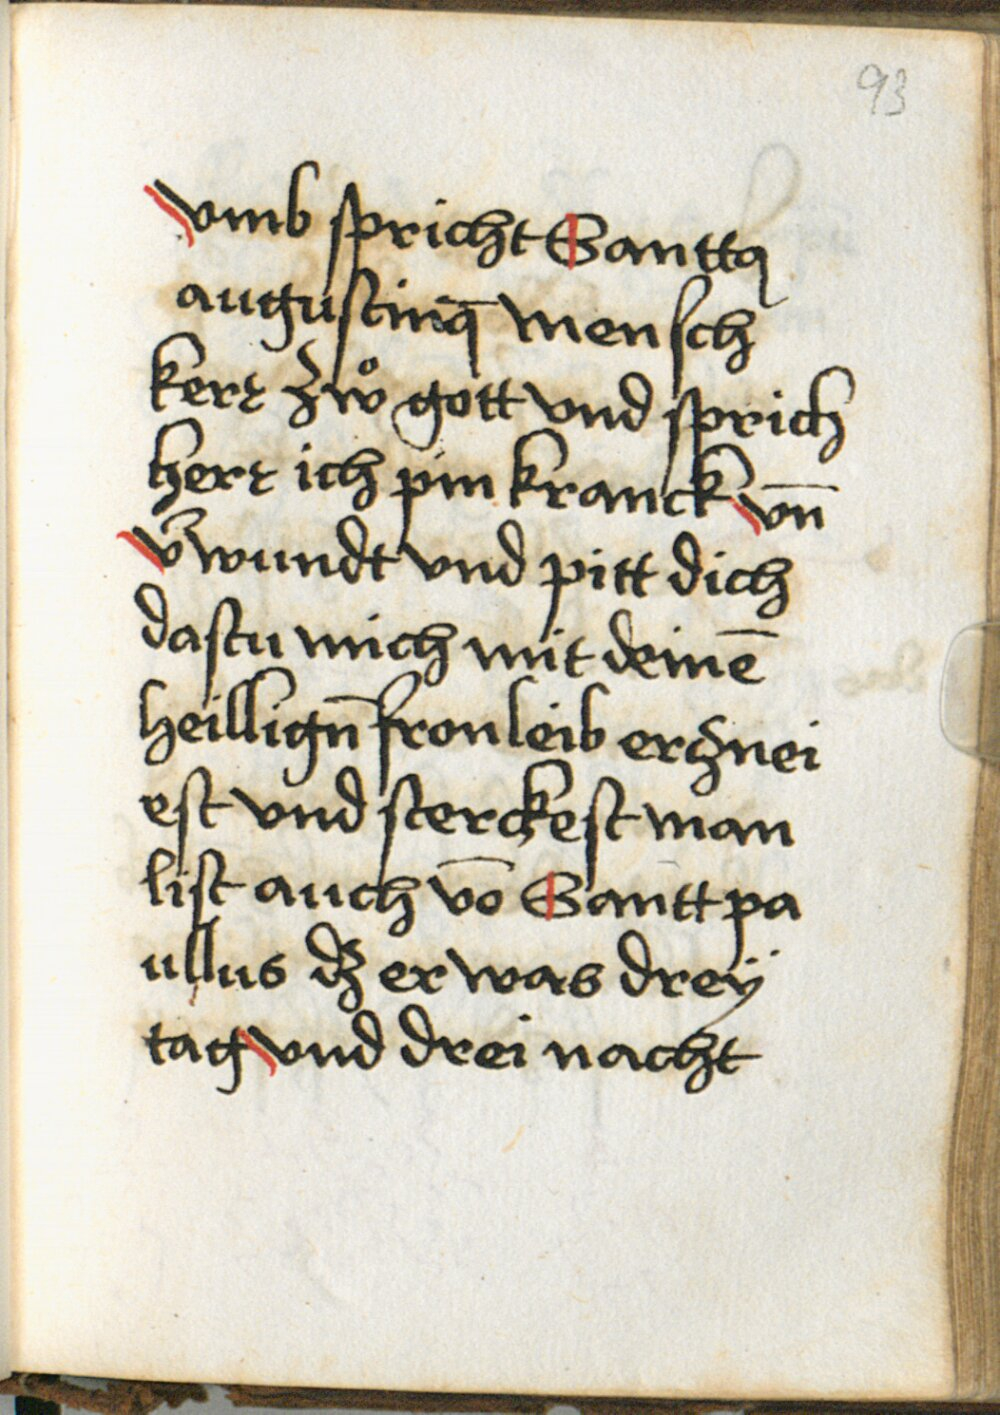 93
vmb spricht Santtꝯ
augustinꝯ̄ mensch
kerꝛ zwͦ gott vnd sprich
herꝛ ich pin kranck vn̄
v̄wundt vnd pitt dich
dastu mich mit deinē
heillign̄ fron leib erznei
est vnd sterckest man
list auch vō Santt pa
ullus dz er was dreÿ
tag vnd drei nacht